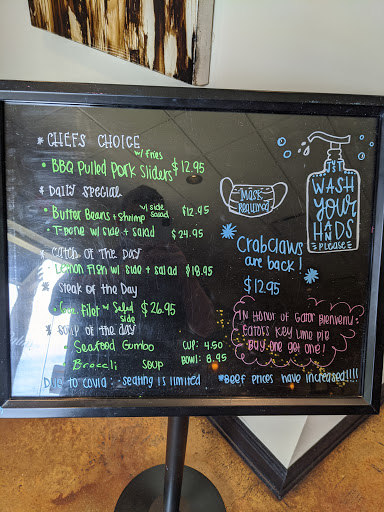 * CHEFS CHOICE
w/ fries
• BBQ Pulled Pork Sliders $12.95
* Daily Special
• Butter Beans + Shrimp w/ side salad $12.95
• T-Bone w/ side + salad $24.95
* Catch of the Day
• Lemon Fish w/ side + salad $18.95
* Steak of the Day
Filet w/ Salad side $26.95
* Soup of the day
• Seafood Gumbo
Broccoli Soup
Cup: 4.50
Bowl: 8.95
Due to covid: seating is limited
Mask Required
* Crabclaws are back! *
$12.95
JUST
WASH
your
HANDS
PLEASE
In Honor of Gator Bienvenu:
Eatos's Key Lime Pie
Buy one get one!
*Beef prices have increased!!!!